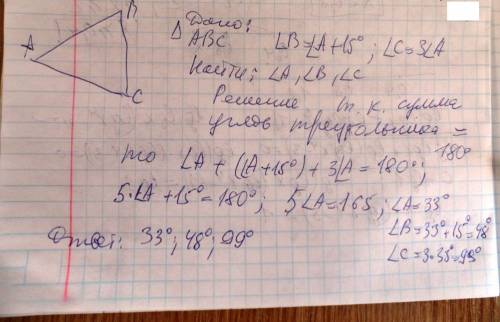 B
A
C
Дано:
△ ABC ∠B=∠A+15°; ∠C=3∠A
Найти: ∠A, ∠B, ∠C
Решение т. к. сумма
углов треугольника =
180°
то ∠A + (∠A+15°) + 3∠A = 180°;
5·∠A + 15° = 180°; 5∠A = 165; ∠A = 33°
∠B = 33°+15° = 48°
Ответ: 33°; 48°; 99°
∠C = 3·33° = 99°